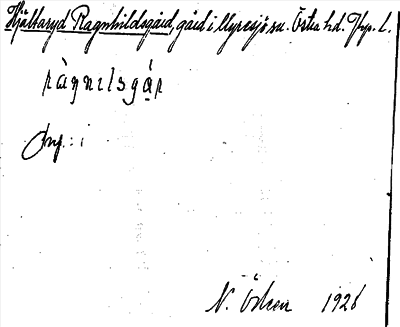 Hjälteryd Ragnhildsgård, gård i Myresjö sn. Östra hd. Jkp. L.
ràgnılsgá̤r
Prep.: i
N. Ösken 1926